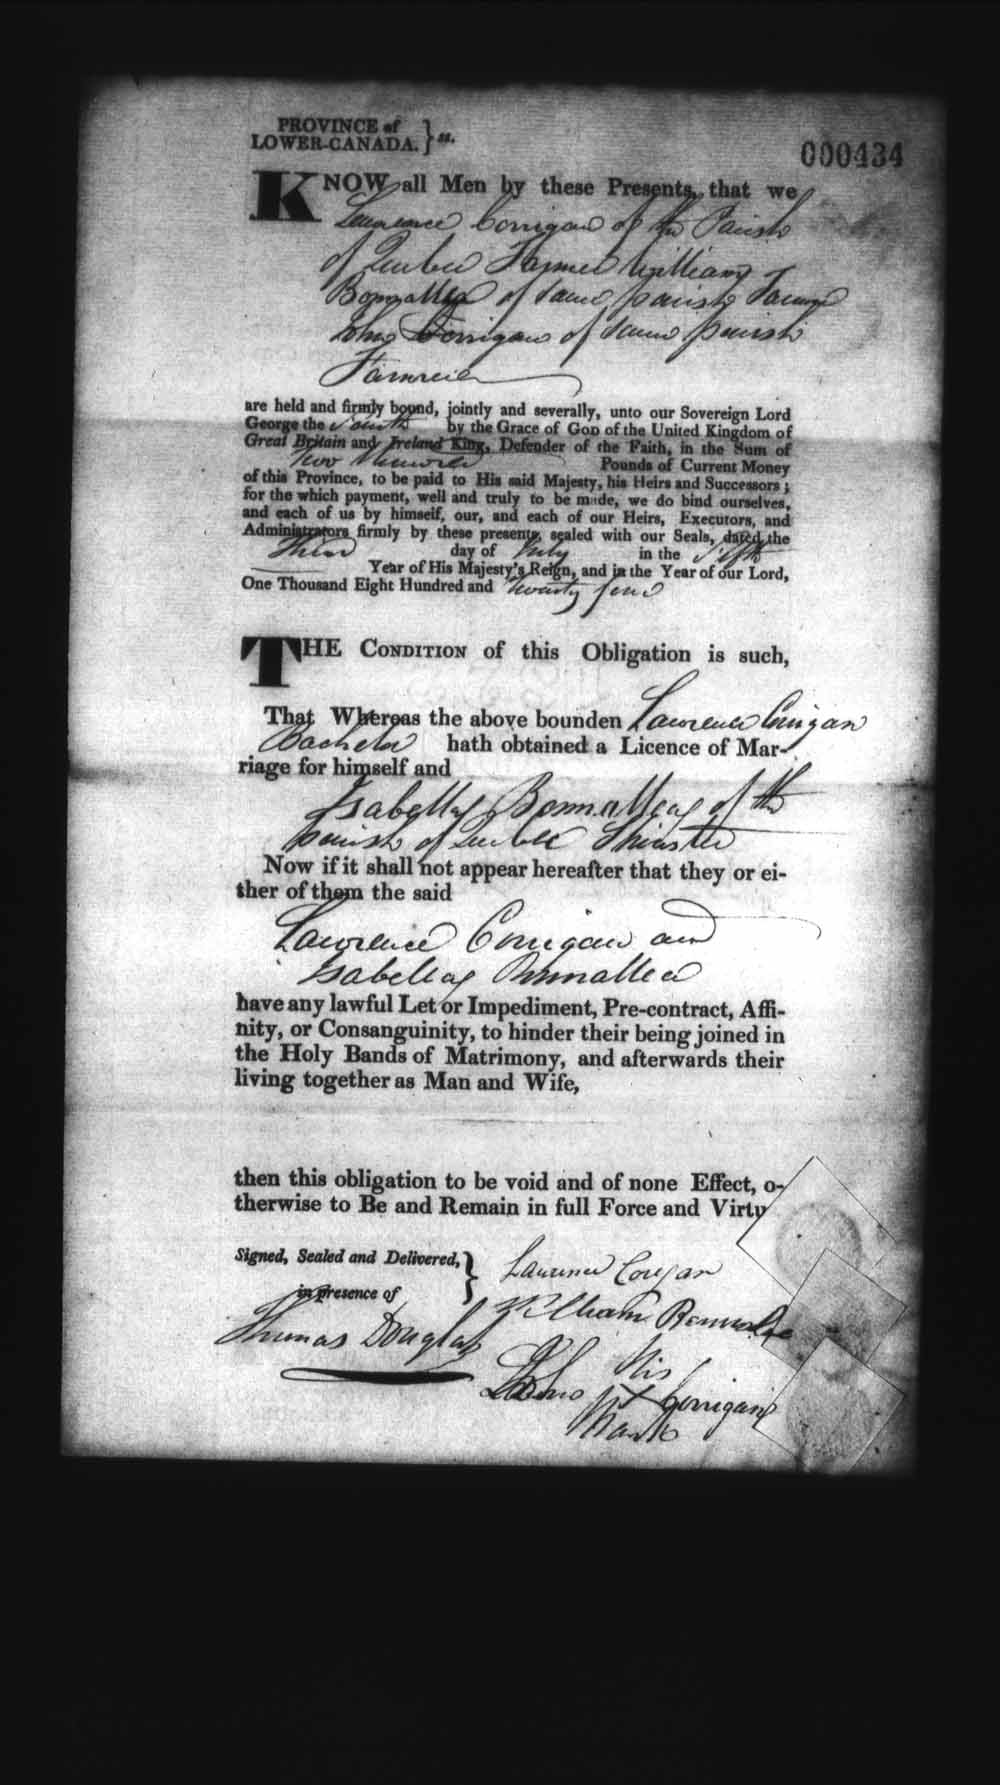 PROVINCE of
LOWER-CANADA. } ss.
000434
KNOW all Men by these Presents, that we
Lawrence Corrigan of the Parish
of Quebec Farmer William
of same parish Farmer
John Corrigan of same parish
Farmer
are held and firmly bound, jointly and severally, unto our Sovereign Lord
George the Fourth by the Grace of GOD of the United Kingdom of
Great Britain and Ireland King, Defender of the Faith, in the Sum of
Two Hundred Pounds of Current Money
of this Province, to be paid to His said Majesty, his Heirs and Successors;
for the which payment, well and truly to be made, we do bind ourselves,
and each of us by himself, our, and each of our Heirs, Executors, and
Administrators firmly by these presents, sealed with our Seals, dated the
day of July in the Fifth
Year of His Majesty's Reign, and in the Year of our Lord,
One Thousand Eight Hundred and Twenty four
THE CONDITION of this Obligation is such,
That Whereas the above bounden Lawrence Corrigan
Bachelor hath obtained a Licence of Mar-
riage for himself and
Isabella of the
parish of Quebec Spinster
Now if it shall not appear hereafter that they or ei-
ther of them the said
Lawrence Corrigan and
Isabella
have any lawful Let or Impediment, Pre-contract, Affi-
nity, or Consanguinity, to hinder their being joined in
the Holy Bands of Matrimony, and afterwards their
living together as Man and Wife,
then this obligation to be void and of none Effect, o-
therwise to Be and Remain in full Force and Virtu
Signed, Sealed and Delivered, }
in presence of
Lawrence Corigan
William
Thomas Douglas
His
John X Corrigan
Mark